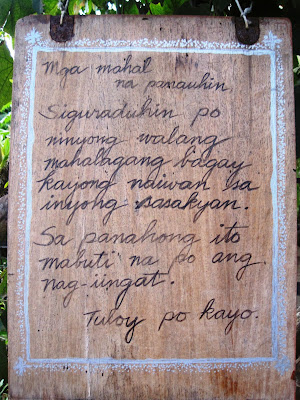 Mga mahal
na panauhin
Siguraduhin po
ninyong walang
mahalagang bagay
kayong naiwan sa
inyong sasakyan.
Sa panahong ito
mabuti na po ang
nag-iingat.
Tuloy po kayo.